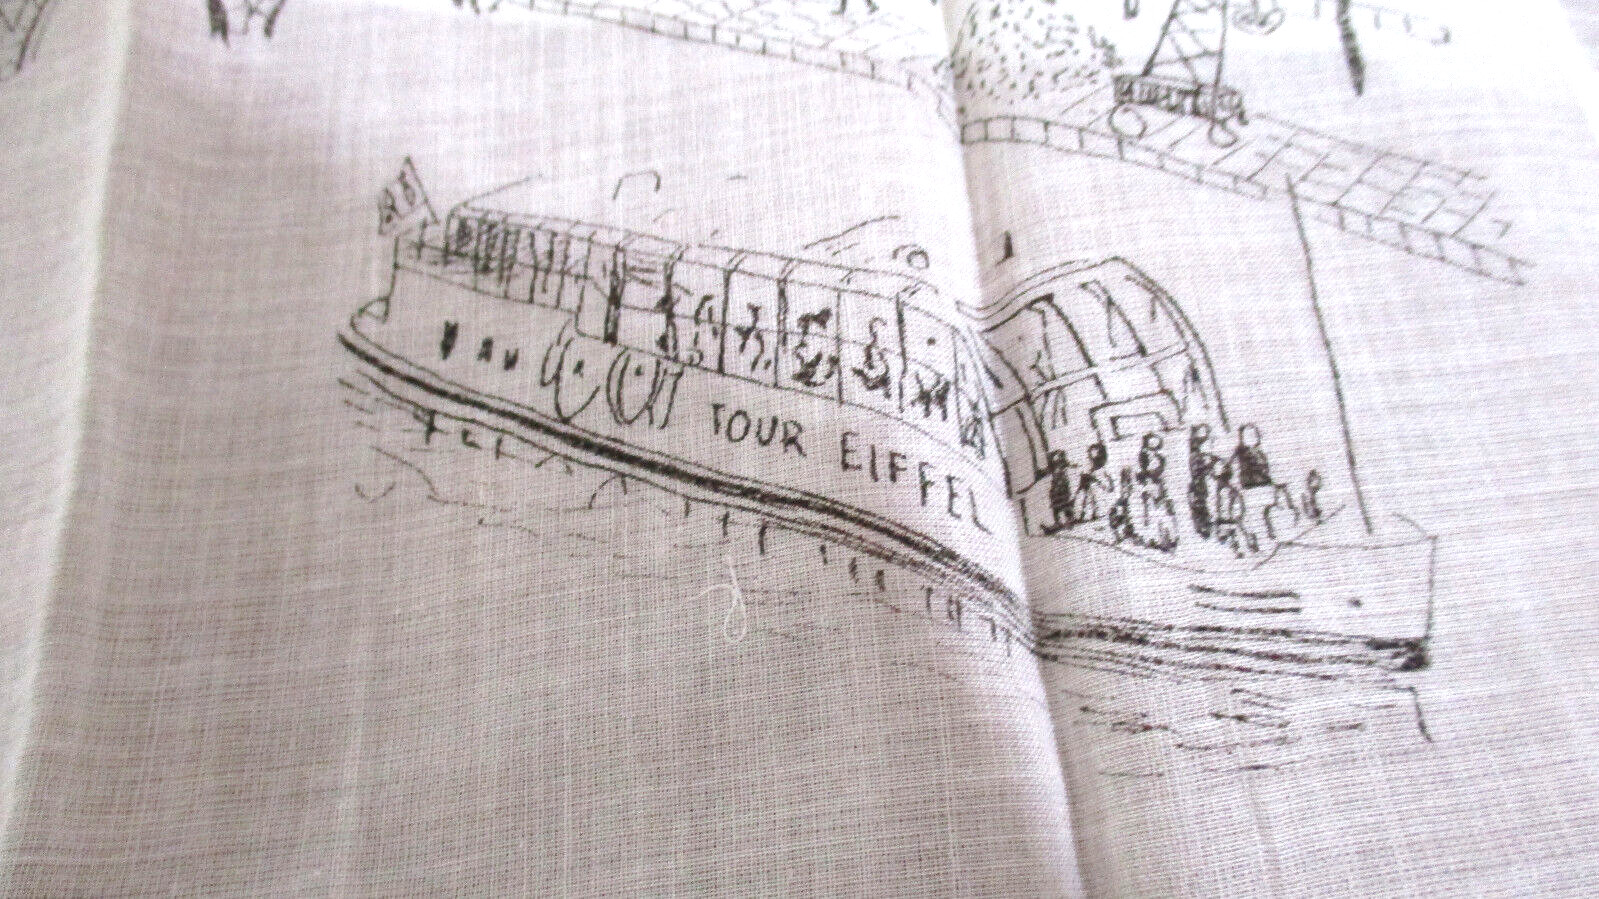 TOUR EIFFEL